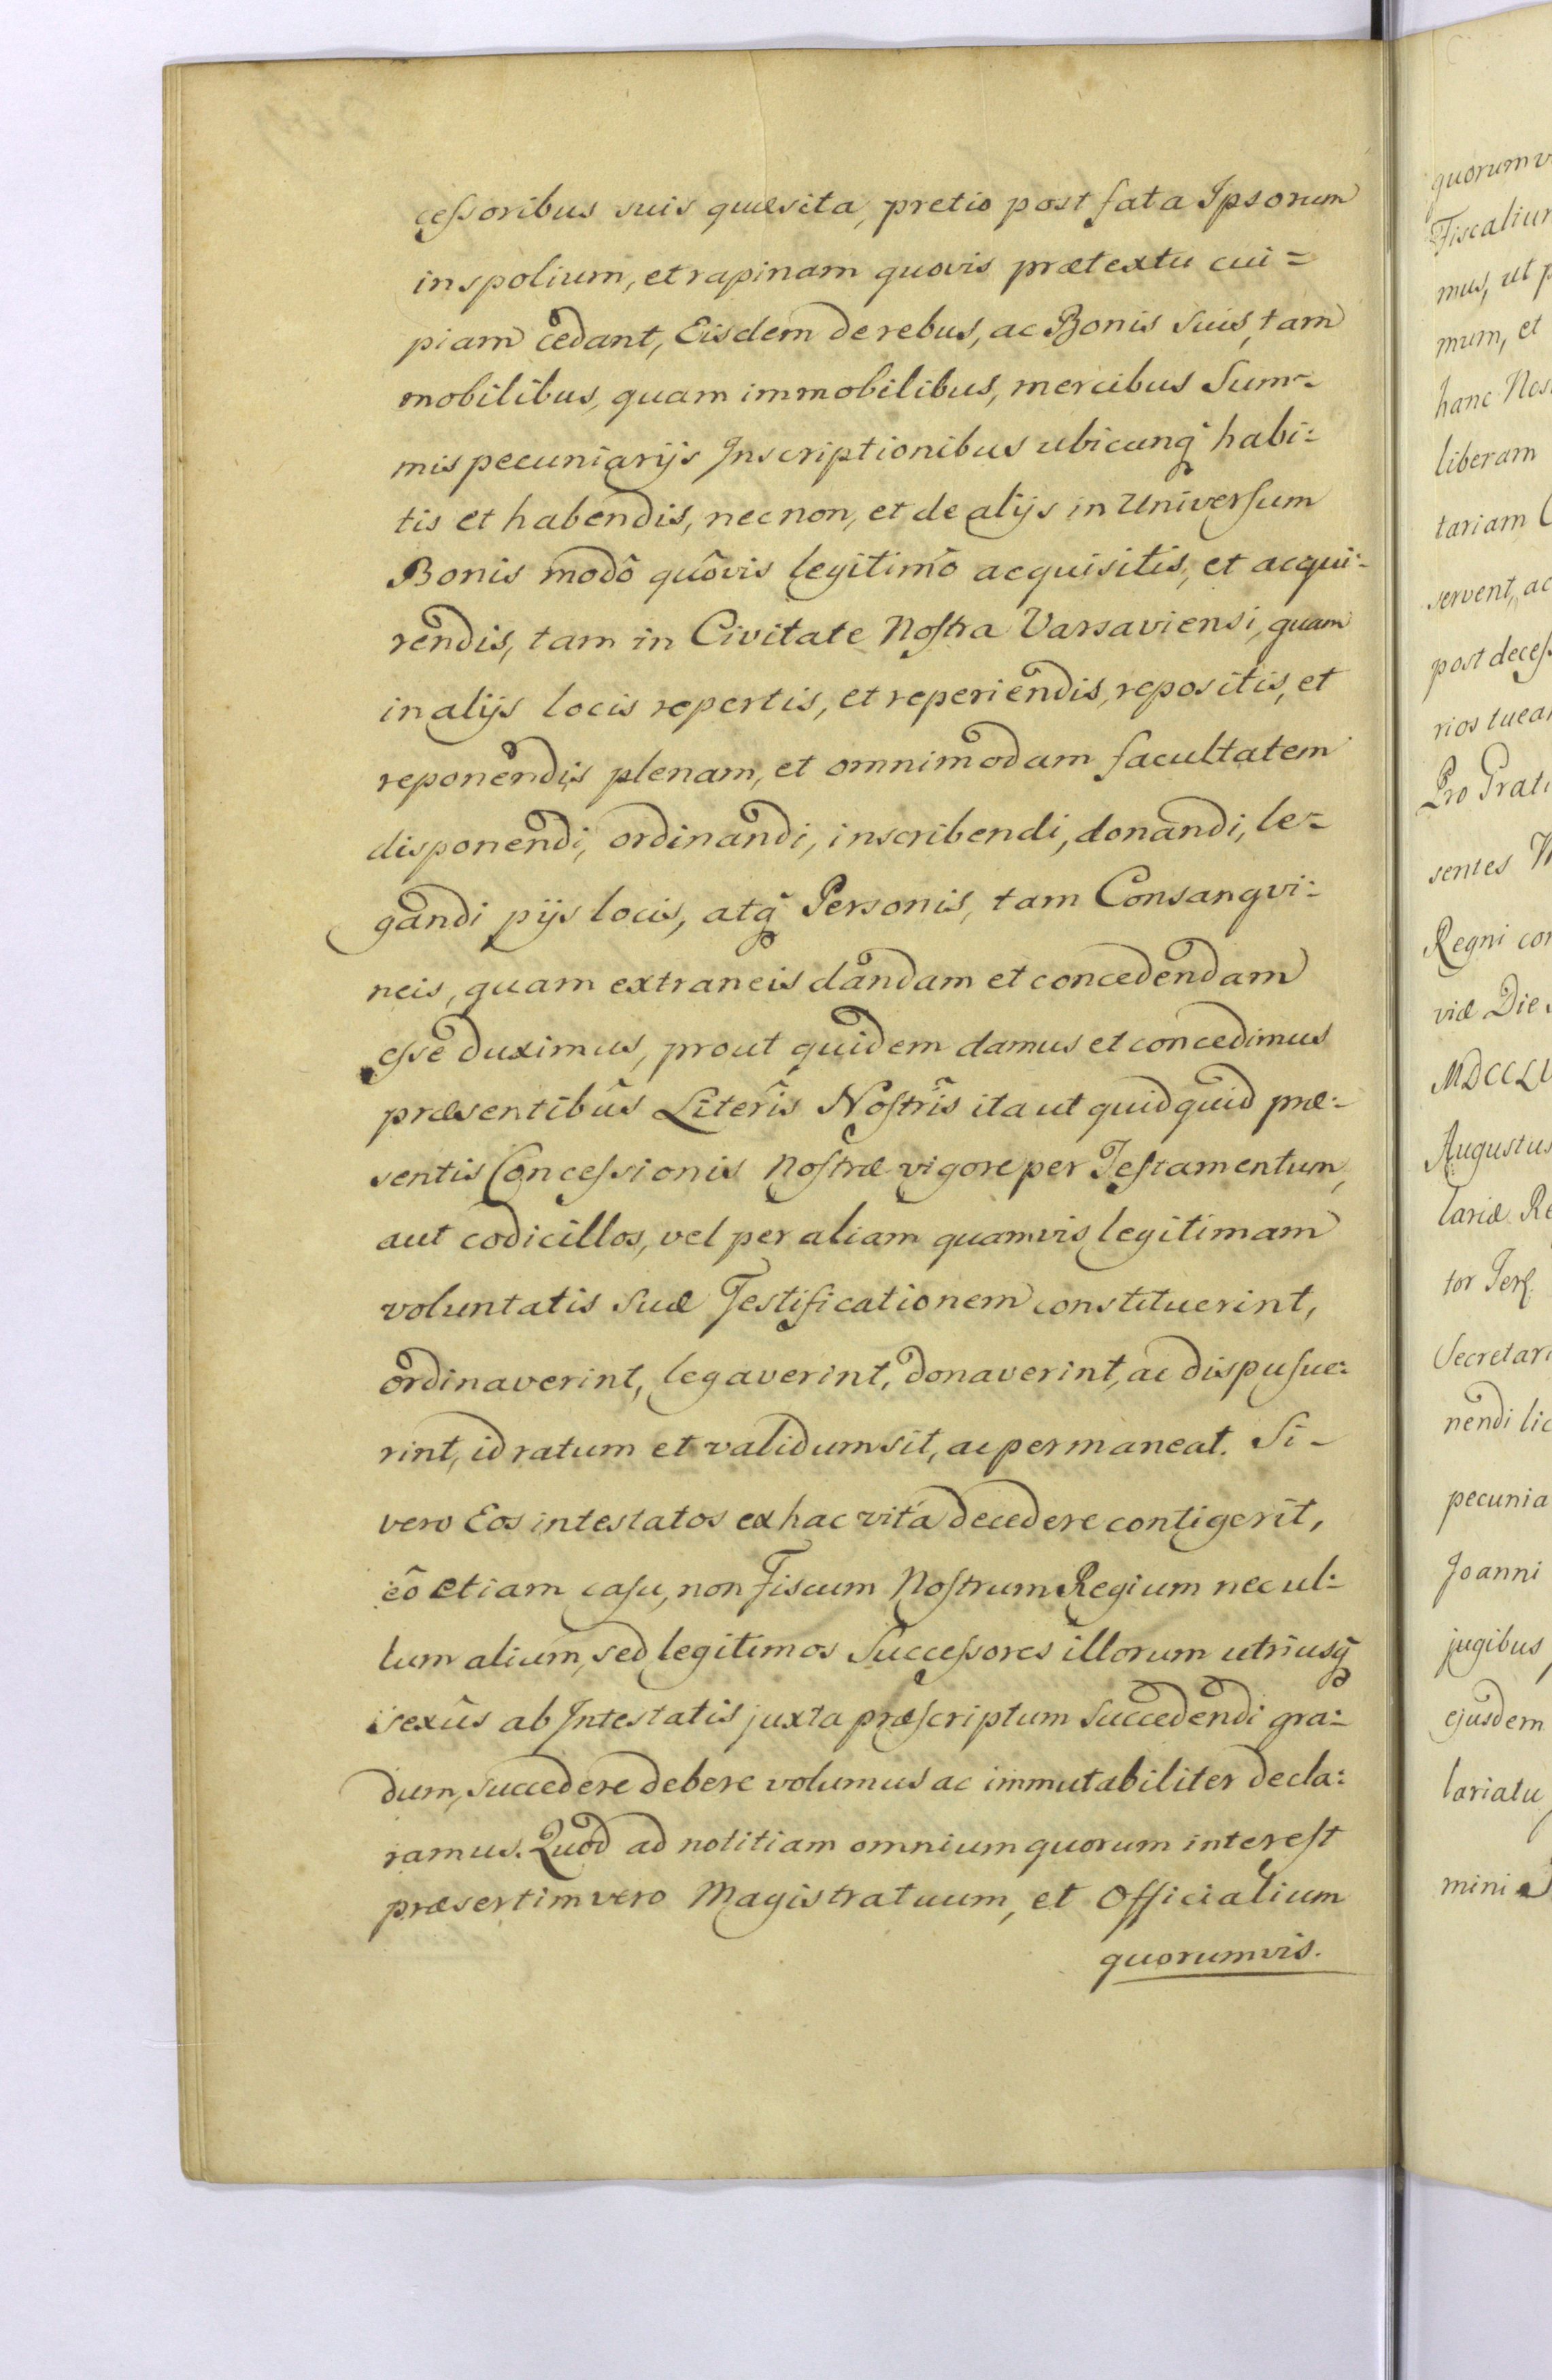 cessoribus suis quæsita, pretio post fata Ipsorum
in spolium, et rapinam quovis prætextu cui=
piam cedant, Eisdem de rebus, ac Bonis suis, tam
mobilibus, quam immobilibus, mercibus Sum=
mis pecuniarijs Inscriptionibus ubicunq habi=
tis et habendis, nec non, et de alijs in Universum
Bonis modô quôvis legitimô acquisitis, et acqui=
rendis, tam in Civitate Nostra Varsaviensi, quam
in alijs locis repertis, et reperiendis, repositis, et
reponendis plenam, et omnimodam facultatem
disponendi, ordinandi, inscribendi, donandi, le=
gandi pijs locis, atq Personis, tam Consangvi=
neis, quam extraneis dandam et concedendam
esse duximus, prout quidem damus et concedimus
præsentibûs Literîs Nostrîs ita ut quidquid præ=
sentis Concessionis Nostræ vigore per Testamentum,
aut codicillos, vel per aliam quamvis legitimam
voluntatis suæ Testificationem constituerint,
ordinaverint, legaverint, donaverint, ac dispusue=
rint, id ratum et validum sit, ac permaneat. Si=
vero Eos intestatos ex hac vitâ decedere contigerit,
eô etiam casu, non Fiscum Nostrum Regium nec ul=
lum alium, sed legitimos Successores illorum utriusq
sexûs ab Intestatis juxta præscriptum succedendi gra=
dum, succedere debere volumus ac immutabiliter decla=
ramus. Quod ad notitiam omnium quorum interest
præsertim vero Magistratuum, et Officialium
quorumvis.
quorumv
Fiscaliur
mus, ut p
mum, et
hanc Nos
liberam
tariam C
servent, ac
post decess
rios tuear
Pro Grati
sentes
Regni con
viæ Die
MDCCLV
Augustus
lariæ Re
tor
Secretari
nendi lic
pecunia
Joanni
jugibus
ejusdem
lariatu
mini